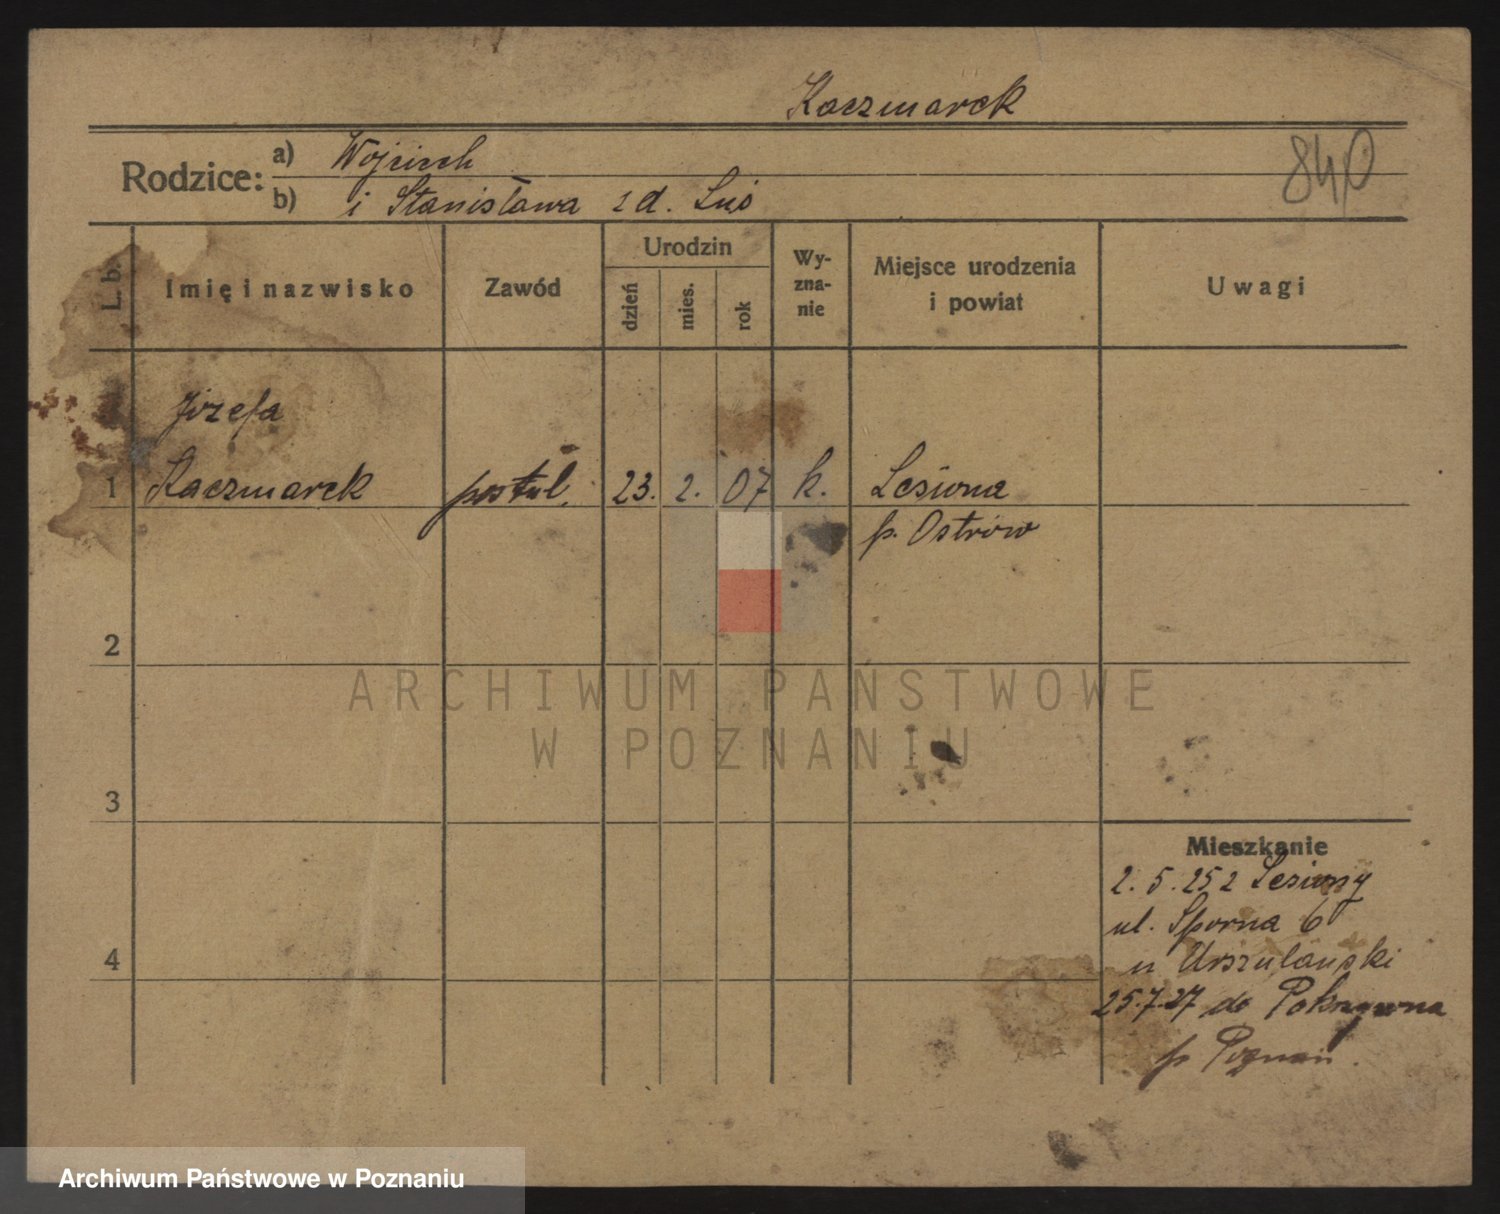 Kaczmarek
840
Rodzice:
a) Wojciech
b) i Stanisława z d. Luś
L. b.
Imię i nazwisko
Zawód
Urodzin
dzień
mies.
rok
Wy-
zna-
nie
Miejsce urodzenia
i powiat
Uwagi
Józefa
1 Kaczmarek postul. 23. 2. 07 k. Lesiona
p. Ostrów
2
ARCHIWUM PAŃSTWOWE
W POZNANIU
3
Mieszkanie
2. 5. 25 z Lesiony
ul. Sporna 6
u Urszulanski
4
25.7.27 do Pokrzywna
p Poznań.
Archiwum Państwowe w Poznaniu